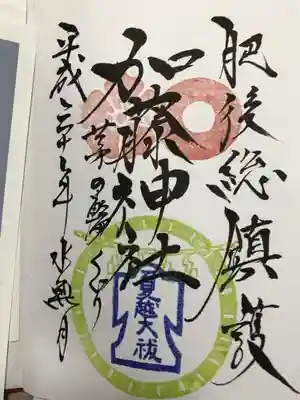 肥後総鎮護
加藤神社
茅の輪くぐり
夏越大祓
平成二十七年水無月